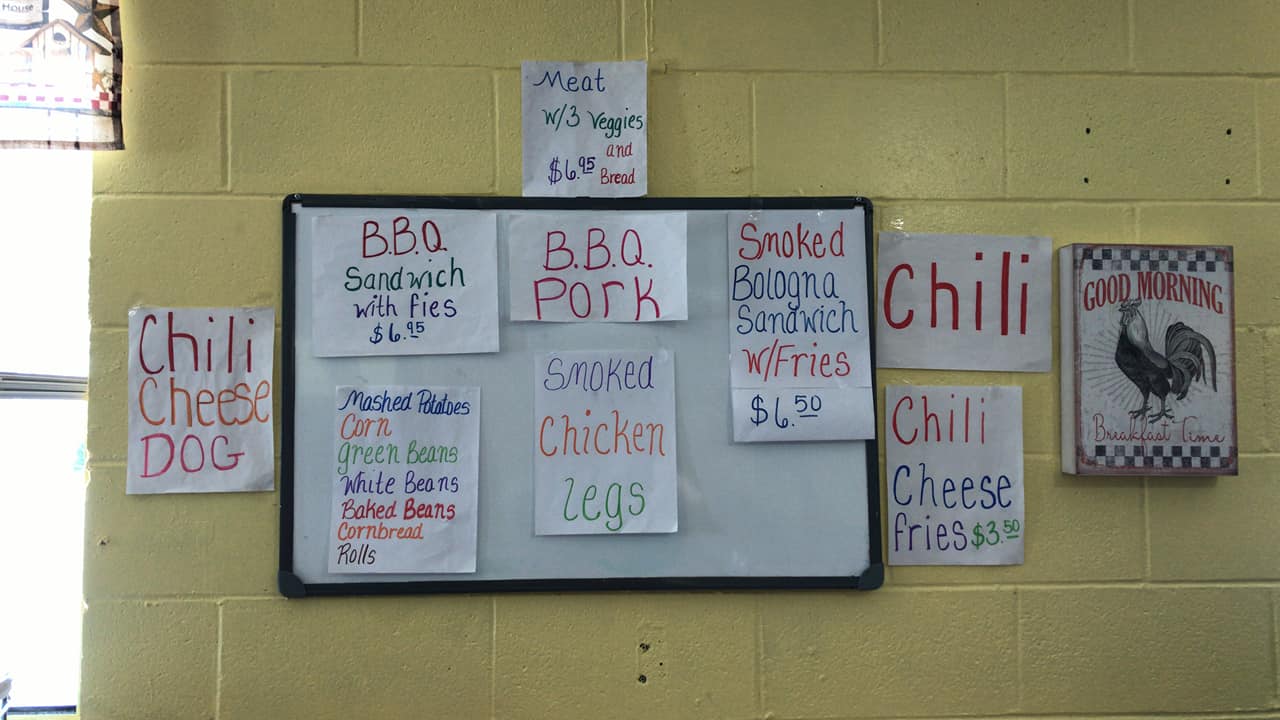 House
Meat
w/3 Veggies
and
$6.95 Bread
B.B.Q.
Sandwich
with fies
$6.95
B.B.Q.
Pork
Smoked
Bologna
Sandwich
w/Fries
$6.50
Chili
GOOD MORNING
Breakfast Time
Chili
Cheese
DOG
Mashed Potatoes
Corn
green Beans
White Beans
Baked Beans
Cornbread
Rolls
Smoked
Chicken
legs
Chili
Cheese
fries $3.50